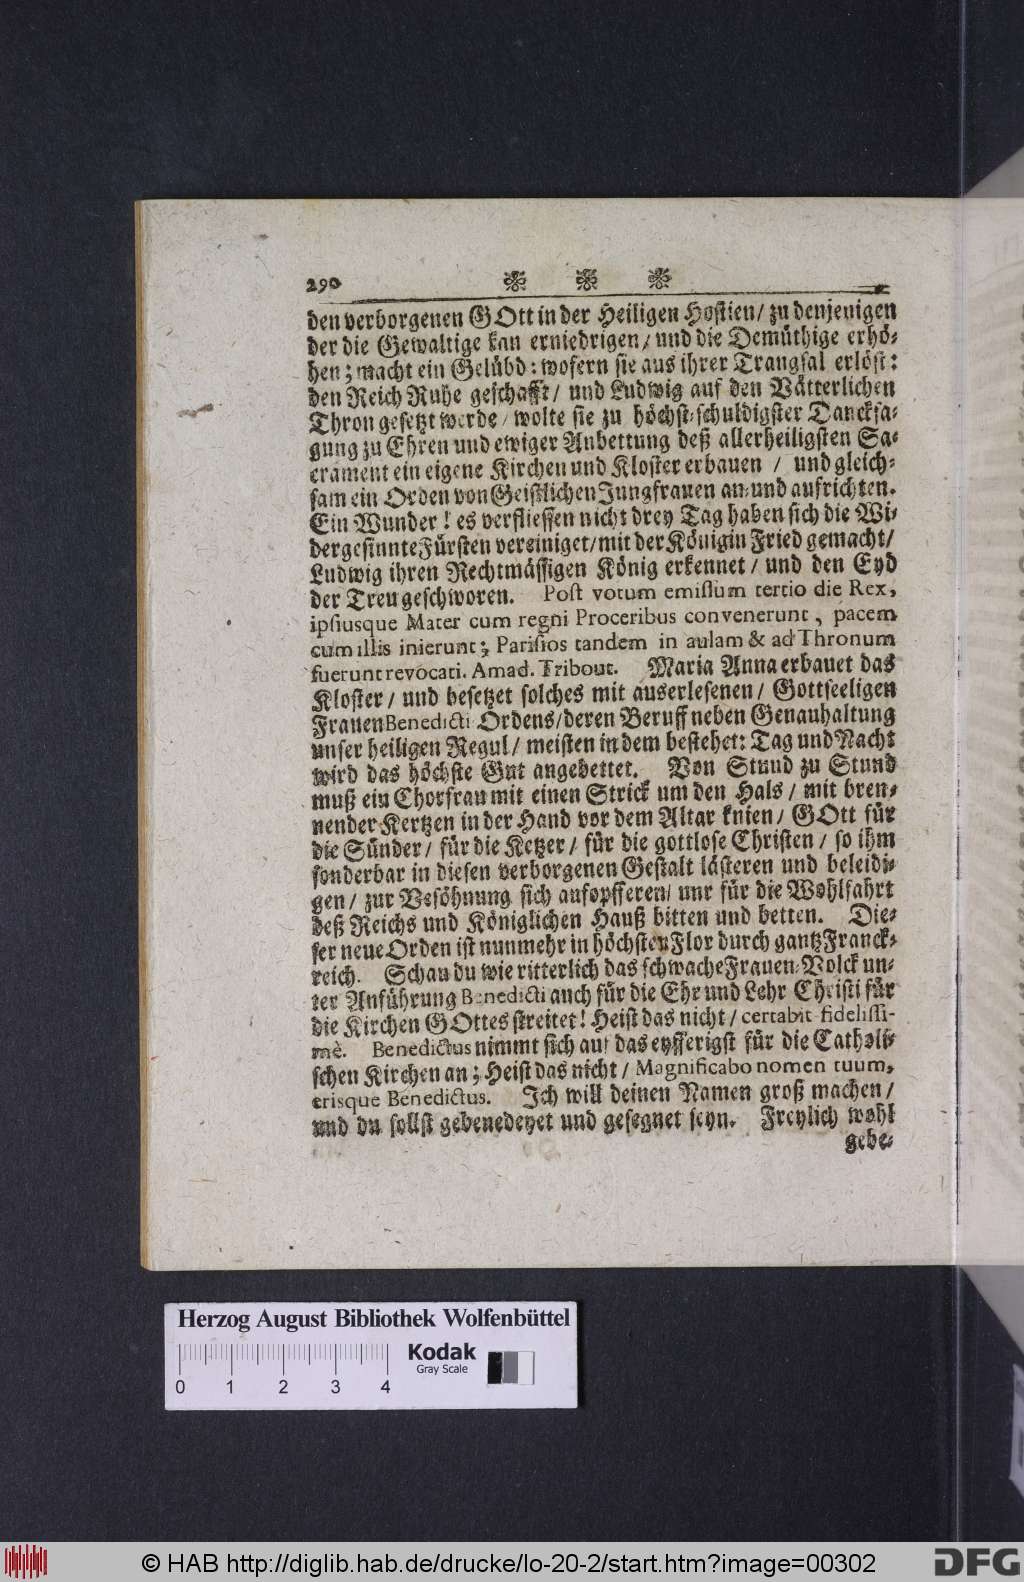 290
den verborgenen GOtt in der Heiligen Hostien/ zu denjenigen
der die Gewaltige kan erniedrigen/ und die Demüthige erhö-
hen; macht ein Gelübd: wofern sie aus ihrer Trangsal erlöst:
den Reich Ruhe geschafft/ und Ludwig auf den Vätterlichen
Thron gesetzt werde/ wolte sie zu höchst-schuldigster Dancksa-
gung zu Ehren und ewiger Anbettung deß allerheiligsten Sa-
crament ein eigene Kirchen und Kloster erbauen / und gleich-
sam ein Orden von Geistlichen Jungfrauen an- und aufrichten.
Ein Wunder! es verfliessen nicht drey Tag haben sich die Wi-
dergesinnte Fürsten vereiniget/ mit der Königin Fried gemacht/
Ludwig ihren Rechtmässigen König erkennet/ und den Eyd
der Treu geschworen. Post votum emissum tertio die Rex,
ipsiusque Mater cum regni Proceribus convenerunt, pacem
cum illis inierunt; Parisios tandem in aulam & ad Thronum
fuerunt revocati. Amad. Tribout. Maria Anna erbauet das
Kloster/ und besetzet solches mit auserlesenen/ Gottseeligen
Frauen Benedicti Ordens/ deren Beruff neben Genauhaltung
unser heiligen Regul/ meisten in dem bestehet: Tag und Nacht
wird das höchste Gut angebettet. Von Stund zu Stund
muß ein Chorfrau mit einen Strick um den Hals/ mit bren-
nender Kertzen in der Hand vor dem Altar knien/ GOtt für
die Sünder/ für die Ketzer/ für die gottlose Christen/ so ihm
sonderbar in diesen verborgenen Gestalt lästeren und beleidi-
gen/ zur Vesöhnung sich aufopfferen/ unr für die Wohlfahrt
deß Reichs und Königlichen Hauß bitten und betten. Die-
ser neue Orden ist nunmehr in höchsten Flor durch gantz Franck-
reich. Schau du wie ritterlich das schwache Frauen-Volck un-
ter Anführung Benedicti auch für die Ehr und Lehr Christi für
die Kirchen GOttes streitet! Heist das nicht/ certabit fidelissi-
mè. Benedictus nimmt sich auf das eyfferigst für die Catholi-
schen Kirchen an; Heist das nicht/ Magnificabo nomen tuum,
erisque Benedictus. Ich will deinen Namen groß machen/
und du sollst gebenedeyet und gesegnet seyn. Freylich wohl
gebe-
Herzog August Bibliothek Wolfenbüttel
Kodak
Gray Scale
0 1 2 3 4
© HAB http://diglib.hab.de/drucke/lo-20-2/start.htm?image=00302
DFG